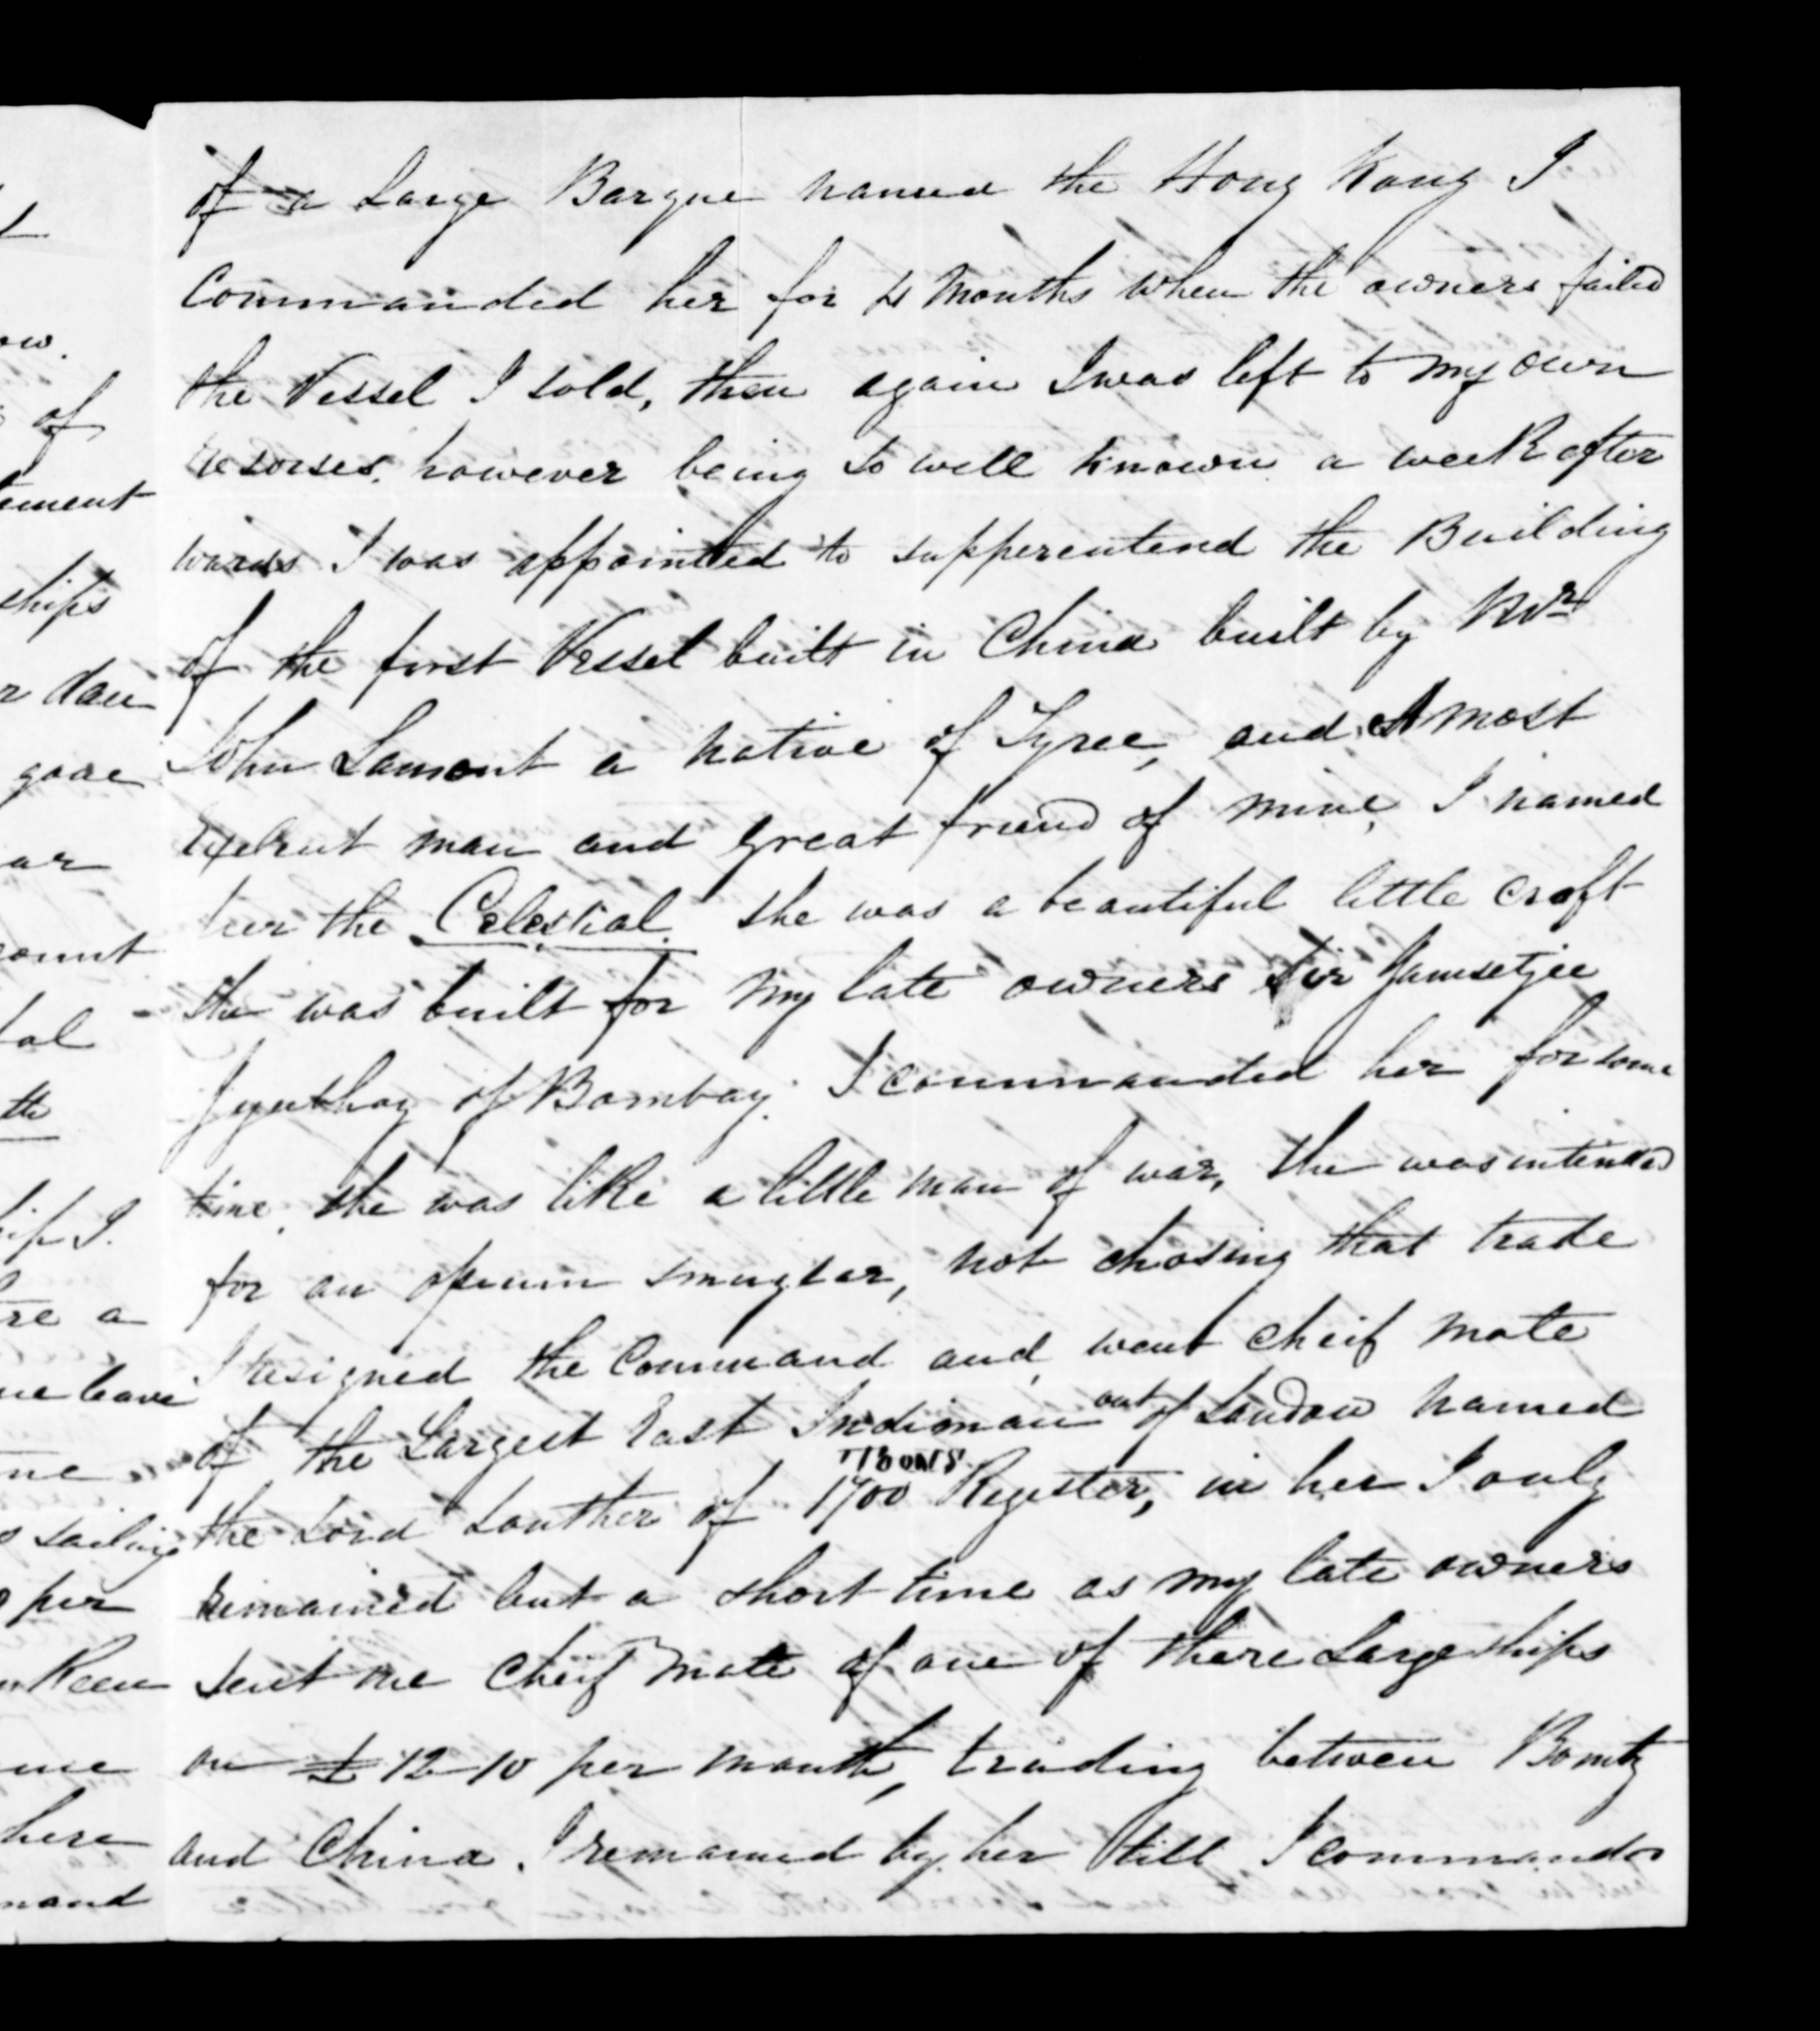 of a Large Barque named the Hong Kong I
Commanded her for 4 Months when the owners failed
the Vessel I sold, then again I was left to my own
resorses, however being so well known a week after
wards I was appointed to supperentend the Building
of the first Vessel built in China built by Mr
John Lamont a native of Tyree, and A most
man and great friend of mine, I named
her the Celestial she was a beautiful little craft
she was built for my late owners Sir Jamsetjee
of Bombay. I commanded her for some
time, she was like a little man of war, She was intended
for an opium smuglar, not chosing that trade
I resigned the Command and went cheif mate
of the Largest East Indiman out of London named
the Lord Louther of 1700 Tons Register, in her I only
remained but a short time as my late owners
sent me Cheif Mate of one of there Large ships
on £12-10 per month, trading between Bomby
and China. I remained by her till I commandes
t
ow.
of
ement
ships
r dau
gone
ar
count
tal
th
hip I.
re a
me leave
me
s sailing
per
Keen
me
here
mand